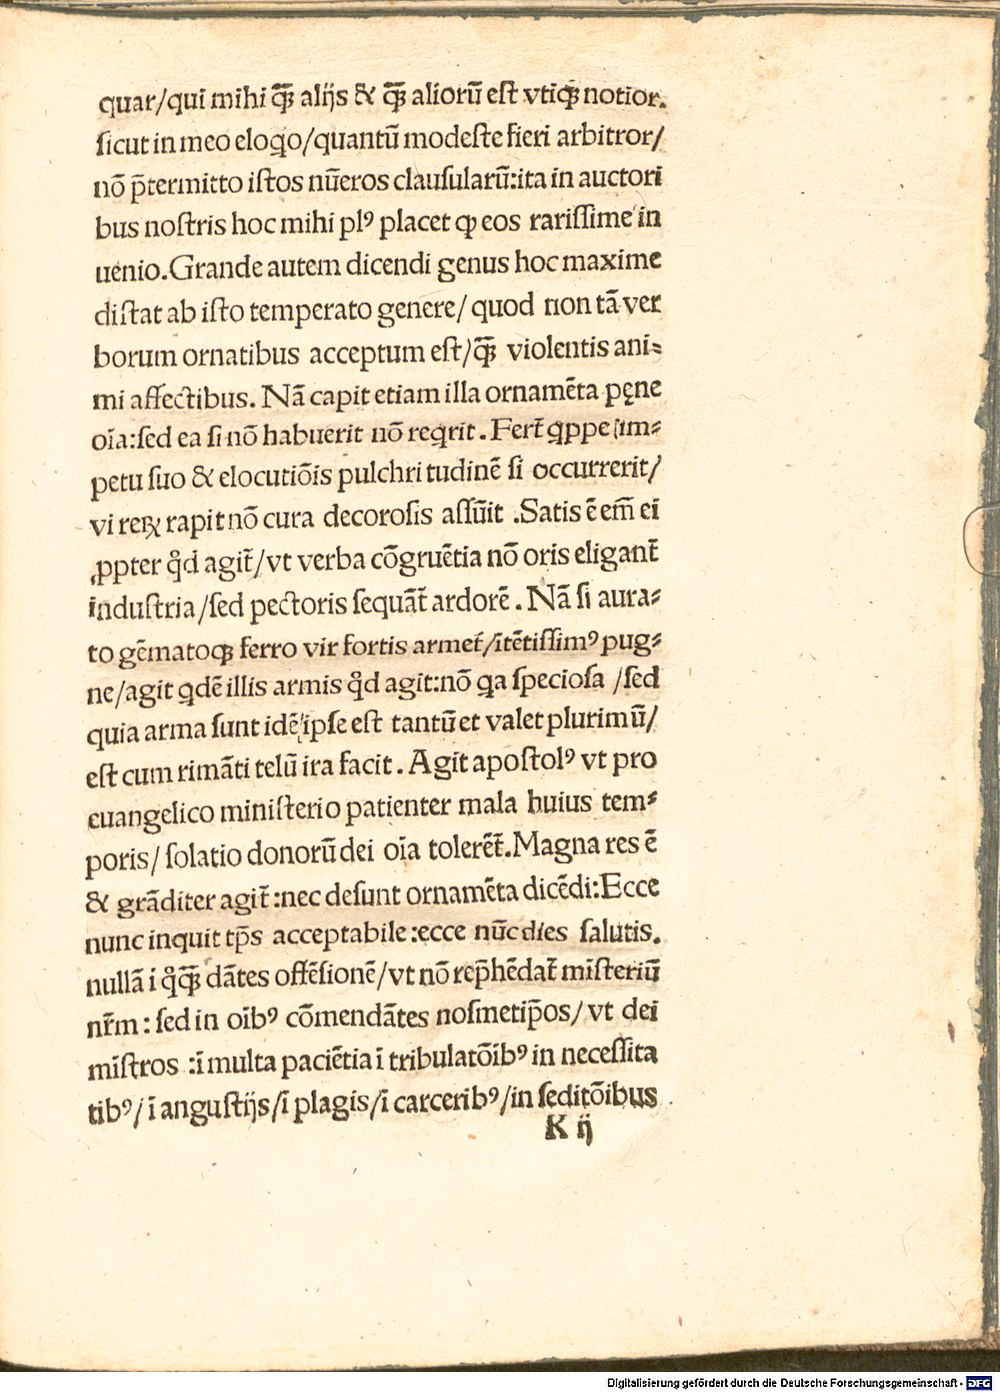 quar/qui mihi q̃ꝫ alijs & q̃ꝫ aliorũ eſt vtiqꝫ notior.
ſicut in meo eloqo/quantũ modeſte fieri arbitror/
nõ p̃termitto iſtos nũeros clauſularũ:ita in auctori
bus noſtris hoc mihi plꝰ placet ꝙ eos rariſſime in
uenio.Grande autem dicendi genus hoc maxime
diſtat ab iſto temperato genere/ quod non tã ver
borum ornatibus acceptum eſt/q̃ꝫ violentis ani⸗
mi affectibus. Nã capit etiam illa ornamẽta pęne
oĩa:ſed ea ſi nõ habuerit nõ reqrit. Fert̃ qppe im⸗
petu ſuo & elocutiõis pulchri tudinẽ ſi occurrerit/
vi reꝝ rapit nõ cura decoroſis aſſũit .Satis ẽ em̃ ei
ꝓpter qͥd agit̃/vt verba cõgruẽtia nõ oris eligant̃
induſtria/ſed pectoris ſequãt̃ ardorẽ. Nã ſi aura⸗
to gẽmatoqꝫ ferro vir fortis armet̃/ĩtẽtiſſimꝰ pug⸗
ne/agit qdẽ illis armis qͥd agit:nõ qa ſpecioſa /ſed
quia arma ſunt idẽ ipſe eſt tantũ et valet plurimũ/
eſt cum rimãti telũ ira facit. Agit apoſtolꝰ vt pro
euangelico miniſterio patienter mala huius tem⸗
poris/ ſolatio donorũ dei oĩa tolerẽt̃.Magna res ẽ
& grãditer agit̃:nec deſunt ornamẽta dicẽdi:Ecce
nunc inquit tp̃s acceptabile:ecce nũc dies ſalutis.
nullã i qͥq̃ꝫ dãtes offẽſionẽ/vt nõ rep̃hẽdat̃ miſteriũ
nr̃m: ſed in oĩbꝰ cõmendãtes noſmetip̃os/ vt dei
mĩſtros :ĩ multa paciẽtia ĩ tribulatõibꝰ in neceſſita
tibꝰ/ ĩ anguſtijs/ĩ plagis/ĩ carceribꝰ/in ſeditõibus
K ij
Digitalisierung gefördert durch die Deutsche Forschungsgemeinschaft - DFG